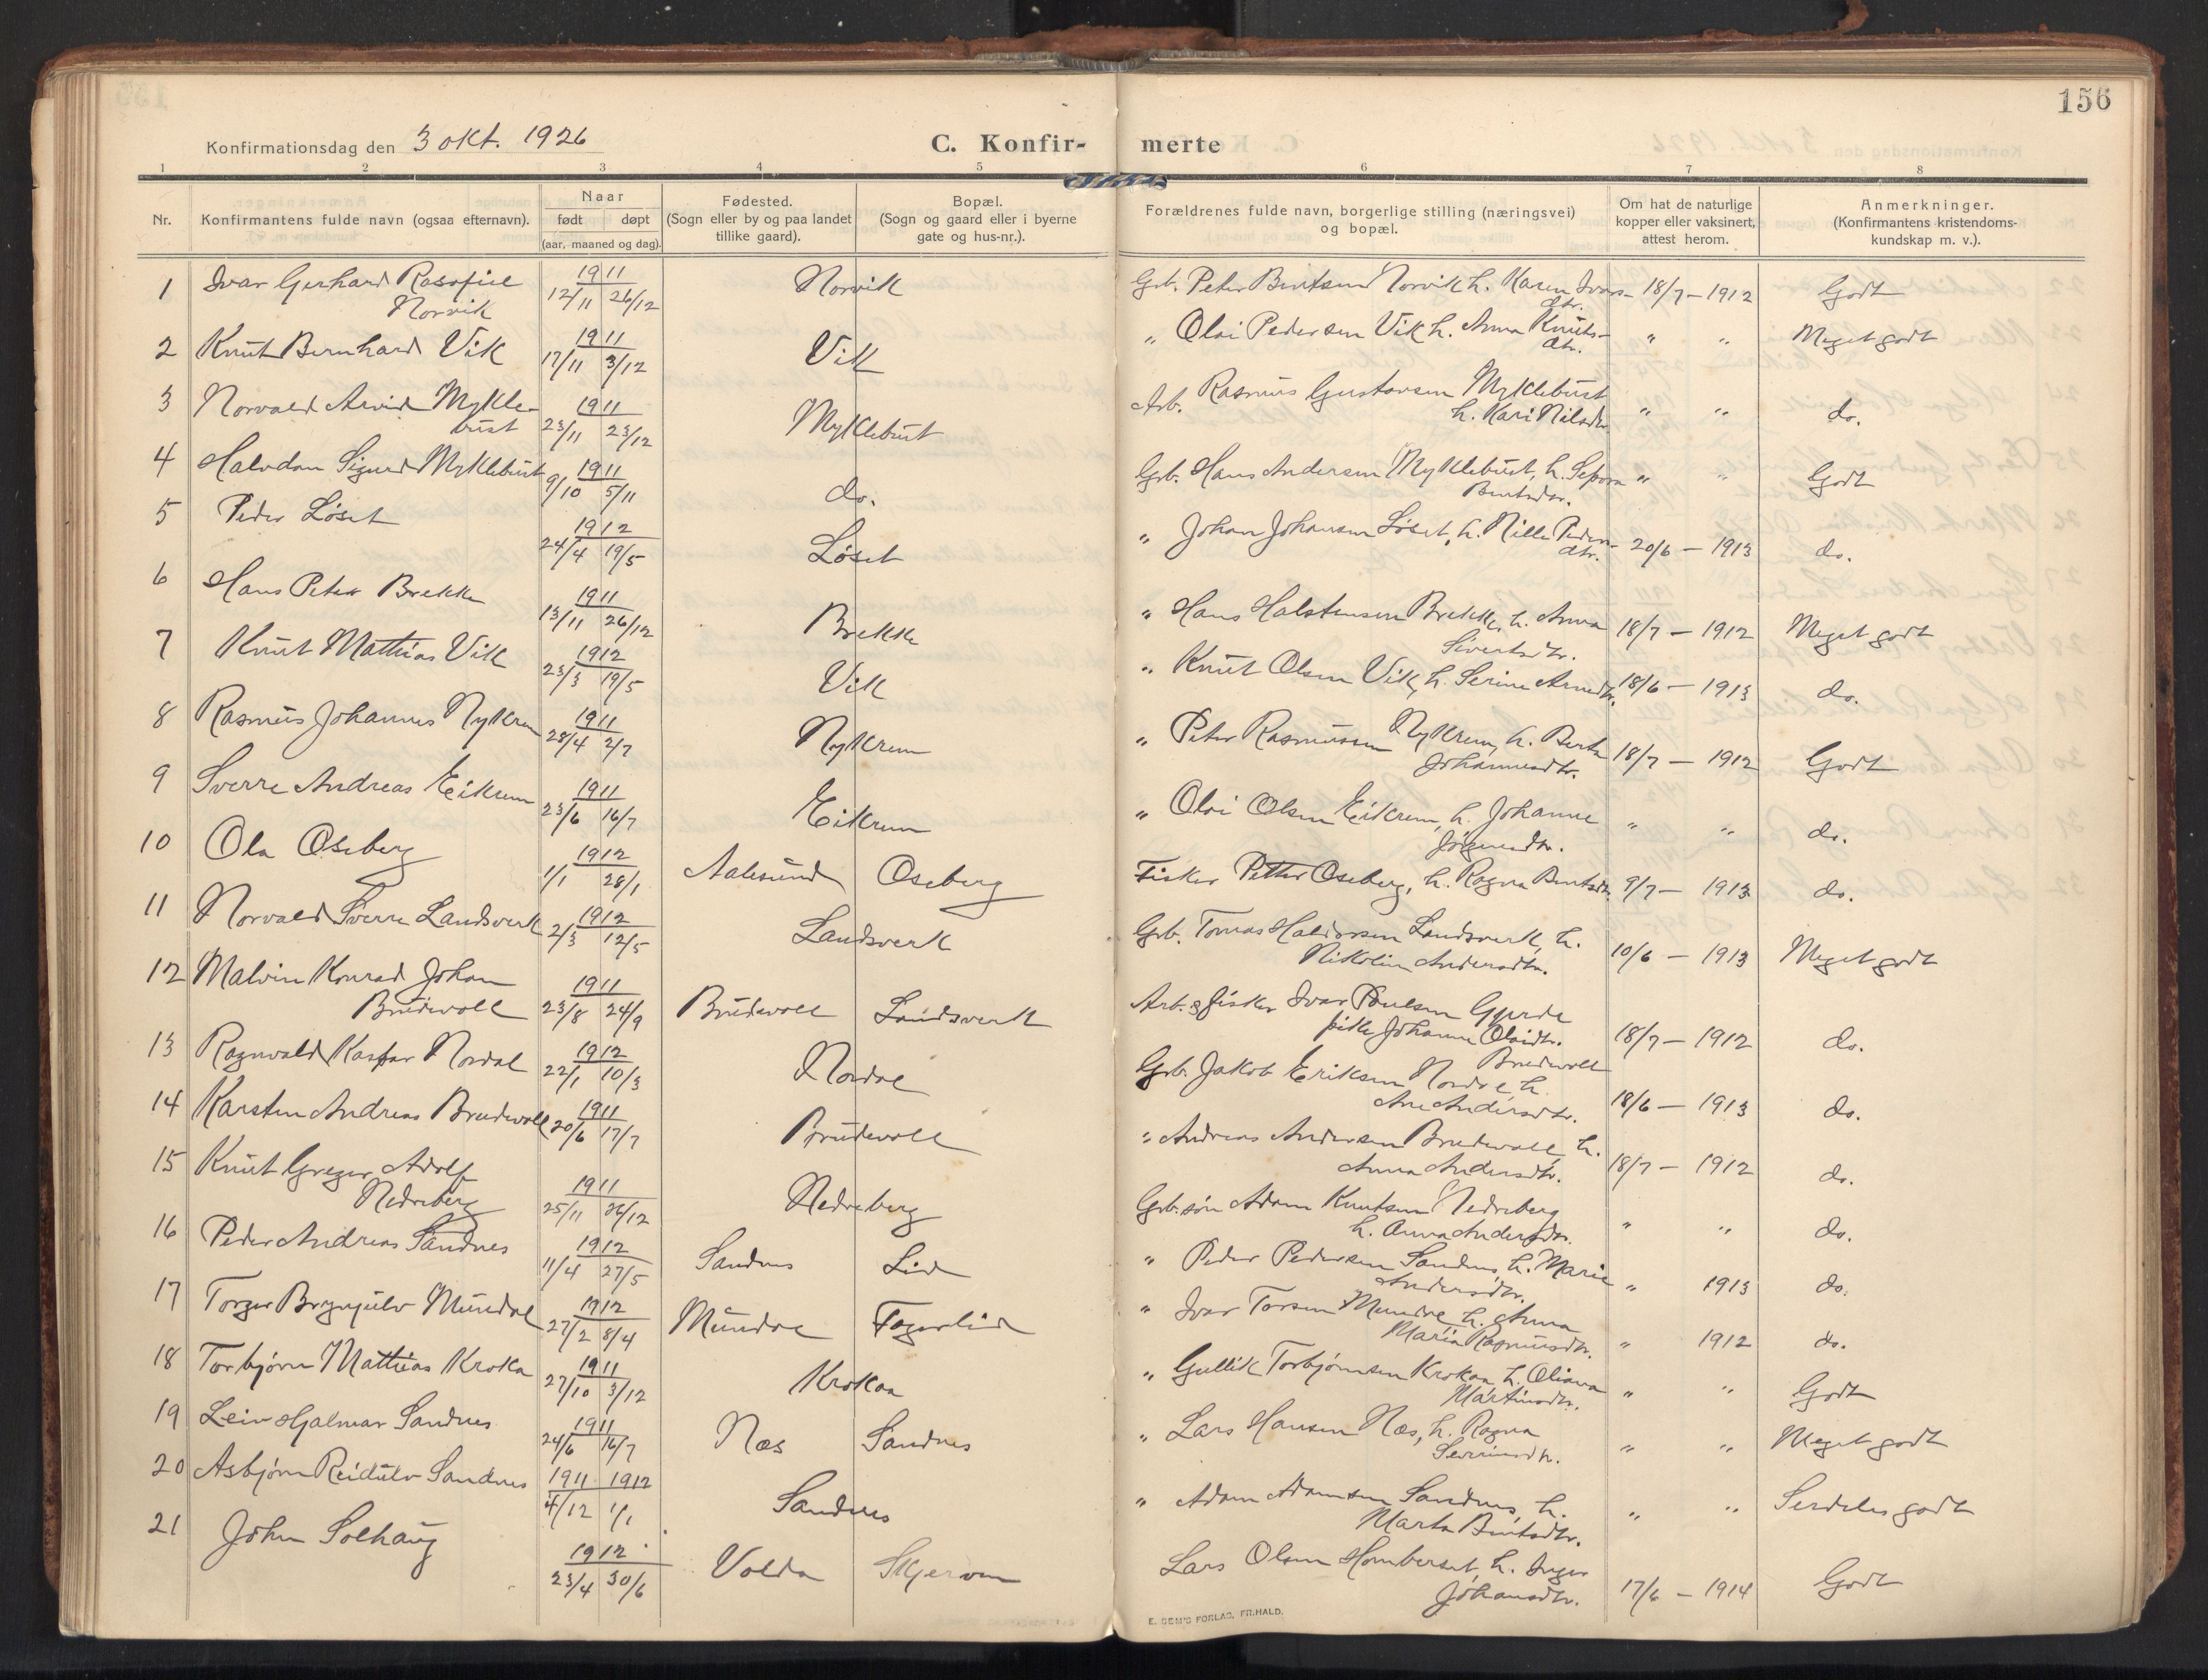 156
Konfirmationsdag den 3 okt. 1926
C. Konfir- merte
1 2 3 4 5 6 7 8
Nr.
Konfirmantens fulde navn (ogsaa efternavn).
Naar
født døpt
(aar, maaned og dag).
Fødested.
(Sogn eller by og paa landet
tillike gaard).
Bopæl.
(Sogn og gaard eller i byerne
gate og hus-nr.).
Forældrenes fulde navn, borgerlige stilling (næringsvei)
og bopæl.
Om hat de naturlige
kopper eller vaksinert,
attest herom.
Anmerkninger.
(Konfirmantens kristendoms-
kundskap m. v.).
1 Ivar Gerhard
Norvik 1911 12/11 26/12 Norvik Grb. Peter Bentsen Norvik h. Karen Ivars-
dtr. 18/7 – 1912 Godt
2 Knut Bernhard Vik 1911 17/11 3/12 Vik " Olai Pedersen Vik h. Anna Knuts-
dtr. " " Meget godt
3 Norvald Arvid Mykle-
bust 1911 23/11 23/12 Myklebust Arb. Rasmus Gustavsen Myklebust
h. Kari Nilsdtr. " " do.
4 Halvdan Sigurd Myklebust 1911 9/10 5/11 do. Grb. Hans Andersen Myklebust, h. Sepora
Bentsdtr. " " Godt
5 Peder Løset 1912 24/4 19/5 Løset " Johan Johansen Løset, h. Nille Peders-
dtr. 20/6 – 1913 do.
6 Hans Peter Brekke 1911 13/11 26/12 Brekke " Hans Halstensen Brekke, h. Anna
Sivertsdtr. 18/7 – 1912 Meget godt
7 Knut Mathias Vik 1912 23/3 19/5 Vik " Knut Olsen Vik, h. Serine Arnedtr. 18/6 – 1913 do.
8 Rasmus Johannes Nykrem 1911 28/4 2/7 Nykrem " Peter Rasmussen Nykrem, h. Berta
Johannesdtr. 18/7 – 1912 Godt
9 Sverre Andreas Eikrem 1911 23/6 16/7 Eikrem " Olai Olsen Eikrem, h. Johanne
Jørgensdtr. " " do.
10 Ola Oseberg 1912 1/1 28/1 Aalesund Oseberg Fisker Petter Oseberg, h. Ragna Bentsdtr. 9/7 – 1913 do.
11 Norvald Sverre Landsverk 1912 2/3 12/5 Landsverk Grb. Tomas Haldorsen Landsverk, h.
Nikoline Andersdtr. 10/6 – 1913 Meget godt
12 Malvin Konrad Johan
Brudevoll 1911 23/8 24/9 Brudevoll Landsverk Arb. & fisker Ivar Poulsen Gjerde
pike Johanne Olsidtr.
Brudevoll 18/7 – 1912 do.
13 Ragnvald Kaspar Nordal 1912 22/1 10/3 Nordal Grb. Jakob Eriksen Nordal h.
Ane Andersdtr. 18/6 – 1913 do.
14 Karsten Andreas Brudevoll 1911 20/6 17/7 Brudevoll " Andreas Andersen Brudevoll, h.
Anna Andersdtr. 18/7 – 1912 do.
15 Knut Greger Adolf
Nedreberg 1911 25/11 26/12 Nedreberg Grb.søn Adam Knutsen Nedreberg
h. Anna Andersdtr. " " do.
16 Peder Andreas Sandnes 1912 11/4 27/5 Sandnes Lid " Peder Pedersen Sandnes, h. Marie
Andersdtr. " 1913 do.
17 Torger Brynjulv Mundal 1912 27/2 8/4 Mundal Fagerlid " Ivar Torsen Mundal h. Anna
Maria Rasmusdtr. " 1912 do.
18 Torbjørn Mathias Krokaa 1911 27/10 3/12 Krokaa " Gullik Torbjørnsen Krokaa h. Oliava
Martinsdtr. " " Godt
19 Leiv Hjalmar Sandnes 1911 24/6 16/7 Næs Sandnes " Lars Hansen Næs, h. Ragna
Severinsdtr. " " Meget godt
20 Asbjørn Reidulv Sandnes 1911 1912 4/12 1/1 Sandnes " Adam Adamsen Sandnes, h.
Marta Bentsdtr. " " Serdeles godt
21 John Solhaug 1912 23/4 30/6 Volda Skjerven Lars Olsen Homberset, h. Inger
Johansdtr. 17/6 – 1914 Godt
E. SEM'S FORLAG, FR.HALD.